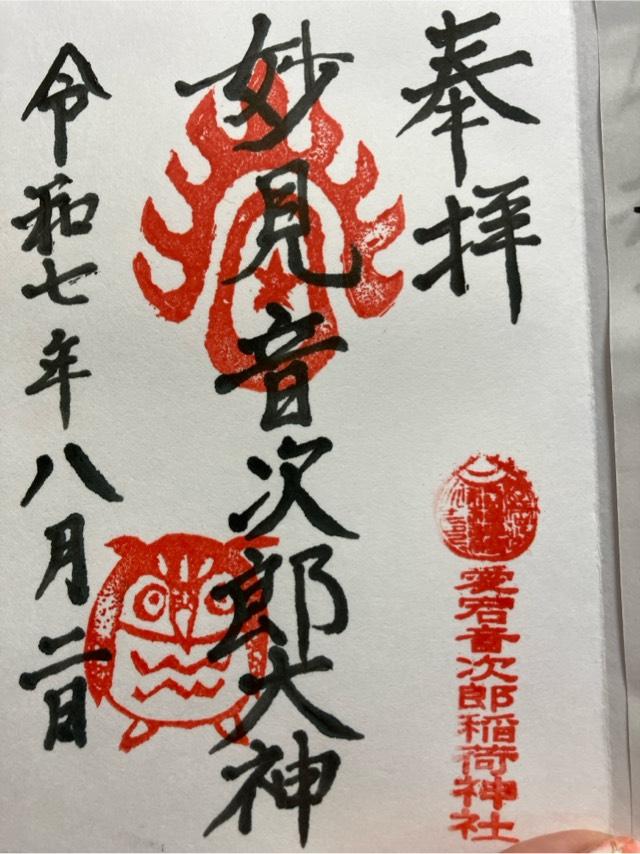 奉拝
妙見音次郎大神
令和七年八月二日
愛宕音次郎稲荷神社